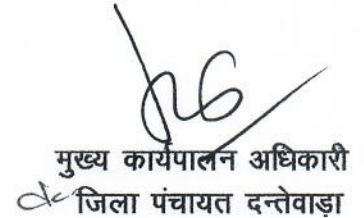 मुख्य कार्यपालन अधिकारी
जिला पंचायत दन्तेवाड़ा